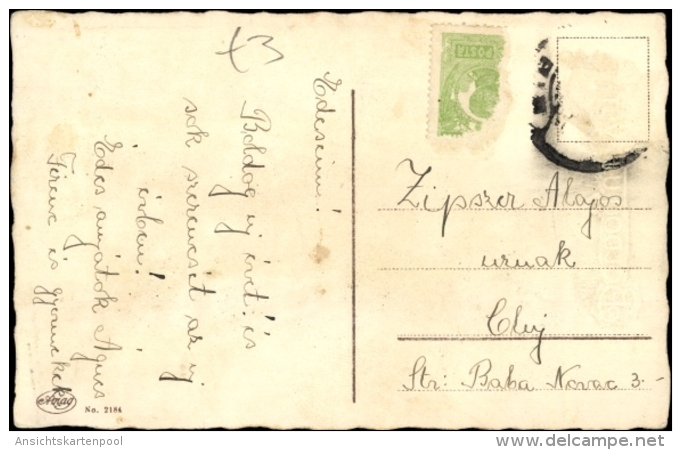 Édeseim!
Boldog új évet! és
sok szerencsét az új
évben!
Édes anyátok Ágnes
Ferenc és gyermekek
Zipszer Alajos
urnak
Cluj
Str: Baba Novac 3.-
POSTA
Amag
No. 2184
Ansichtskartenpool
www.delcampe.net